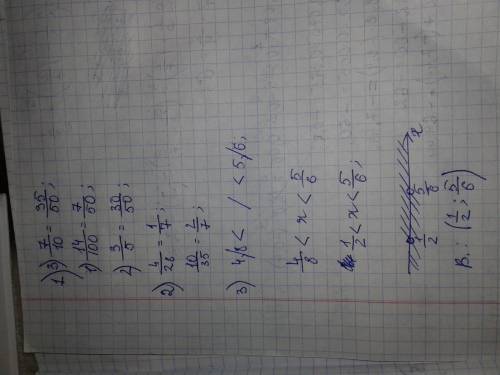 1) 3) 7/10 = 35/50;
1) 14/100 = 7/50;
2) 3/5 = 30/50;
2) 4/28 = 1/7;
10/35 = 2/7;
3) 4/8 < / < 5/6;
4/8 < x < 5/6
1/2 < x < 5/6;
1/2 5/6 x
В.: (1/2; 5/6)